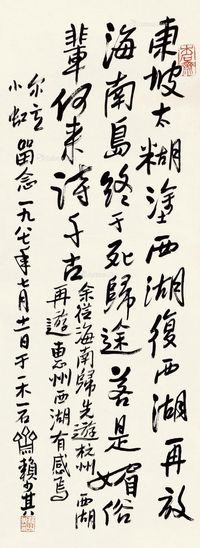 東坡太糊塗西湖復西湖再放
海南島終于死歸途若是媚俗
輩何来詩千古
余從海南歸先遊杭州西湖
再遊惠州西湖有感焉
尔立
小虹 留念一九八七年七月十一日于一木一石齋賴少其